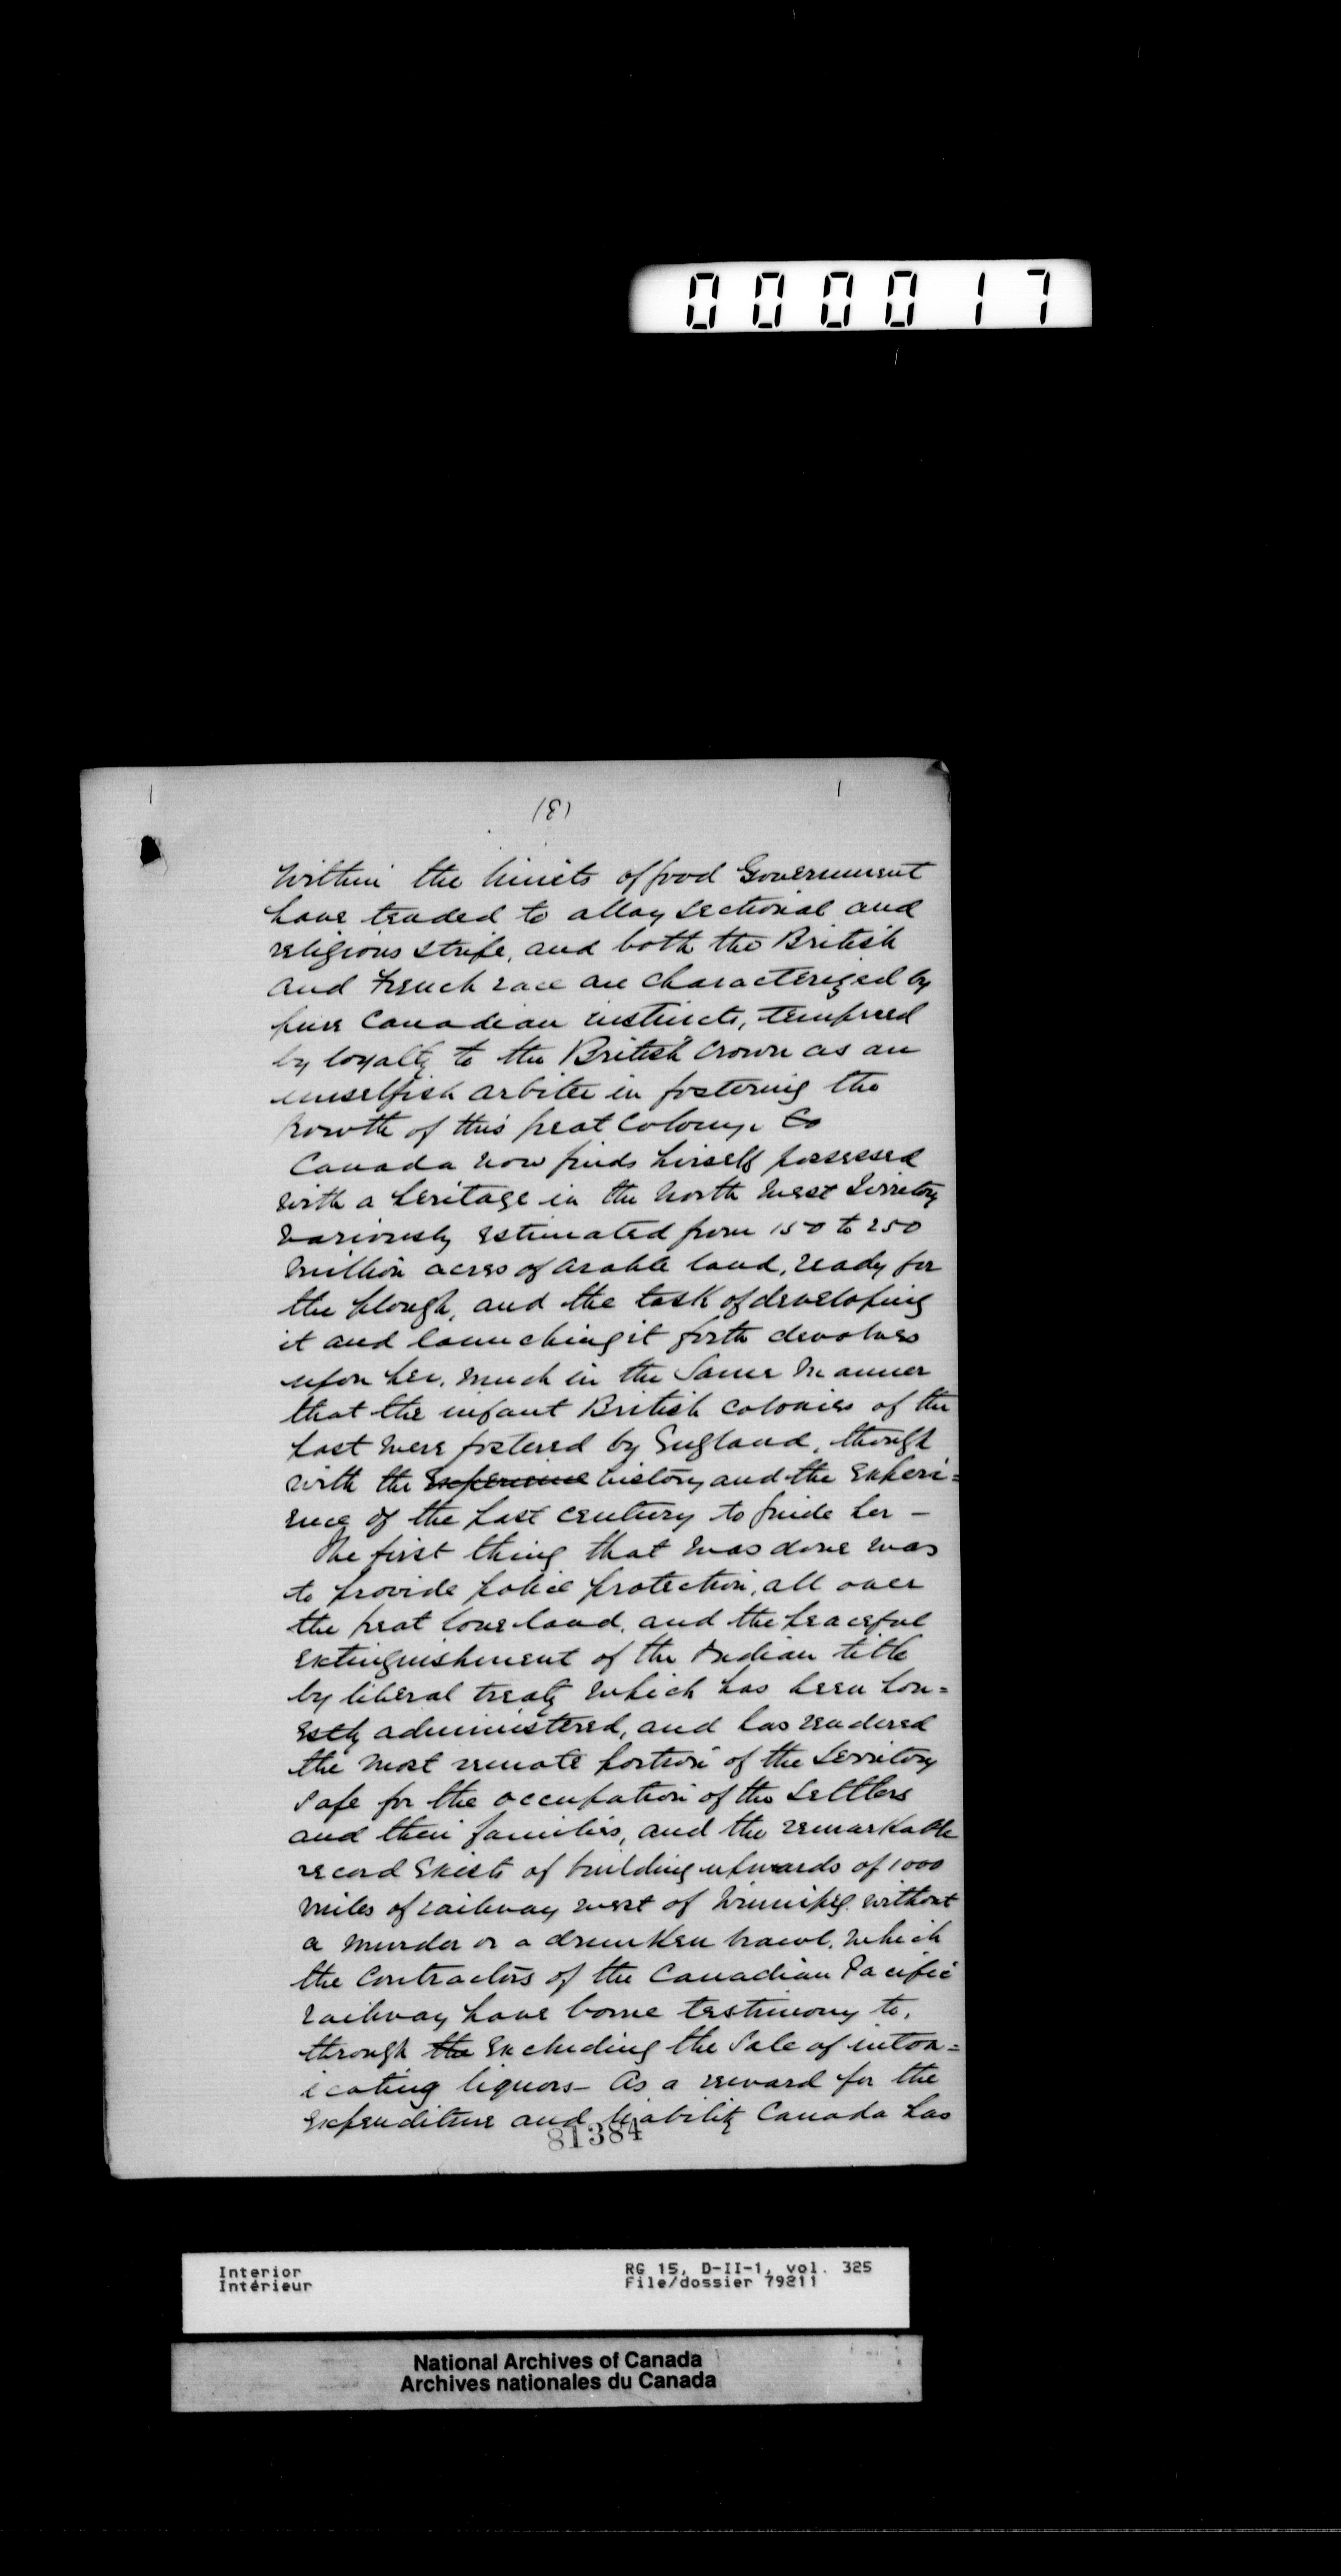 000017
(8)
Within the limits of good Government
have tended to allay sectional and
religious strife, and both the British
and French race are characterized by
pure Canadian instincts, tempered
by loyalty to the British Crown as an
unselfish arbiter in fostering the
growth of this great Colony.
Canada now finds herself possessed
with a heritage in the North West Territory
variously estimated from 150 to 250
million acres of arable land, ready for
the plough, and the task of developing
it and launching it forth devolves
upon her, much in the same manner
that the infant British colonies of the
past were fostered by England, though
with the experience history and the experi=
ence of the past century to guide her -
The first thing that was done was
to provide police protection, all over
the great lone land, and the peaceful
extinguishment of the Indian title
by liberal treaty which has been hon=
estly administered, and has rendered
the most remote portion of the Territory
safe for the occupation of the Settlers
and their families, and the remarkable
record exists of building upwards of 1000
miles of railway west of Winnipeg without
a murder or a drunken brawl, which
the Contractors of the Canadian Pacific
railway have borne testimony to,
through the excluding the Sale of intox=
icating liquors - As a reward for the
expenditure and liability Canada has
81384
Interior
Intérieur
RG 15, D-II-1, vol. 325
File/dossier 79211
National Archives of Canada
Archives nationales du Canada